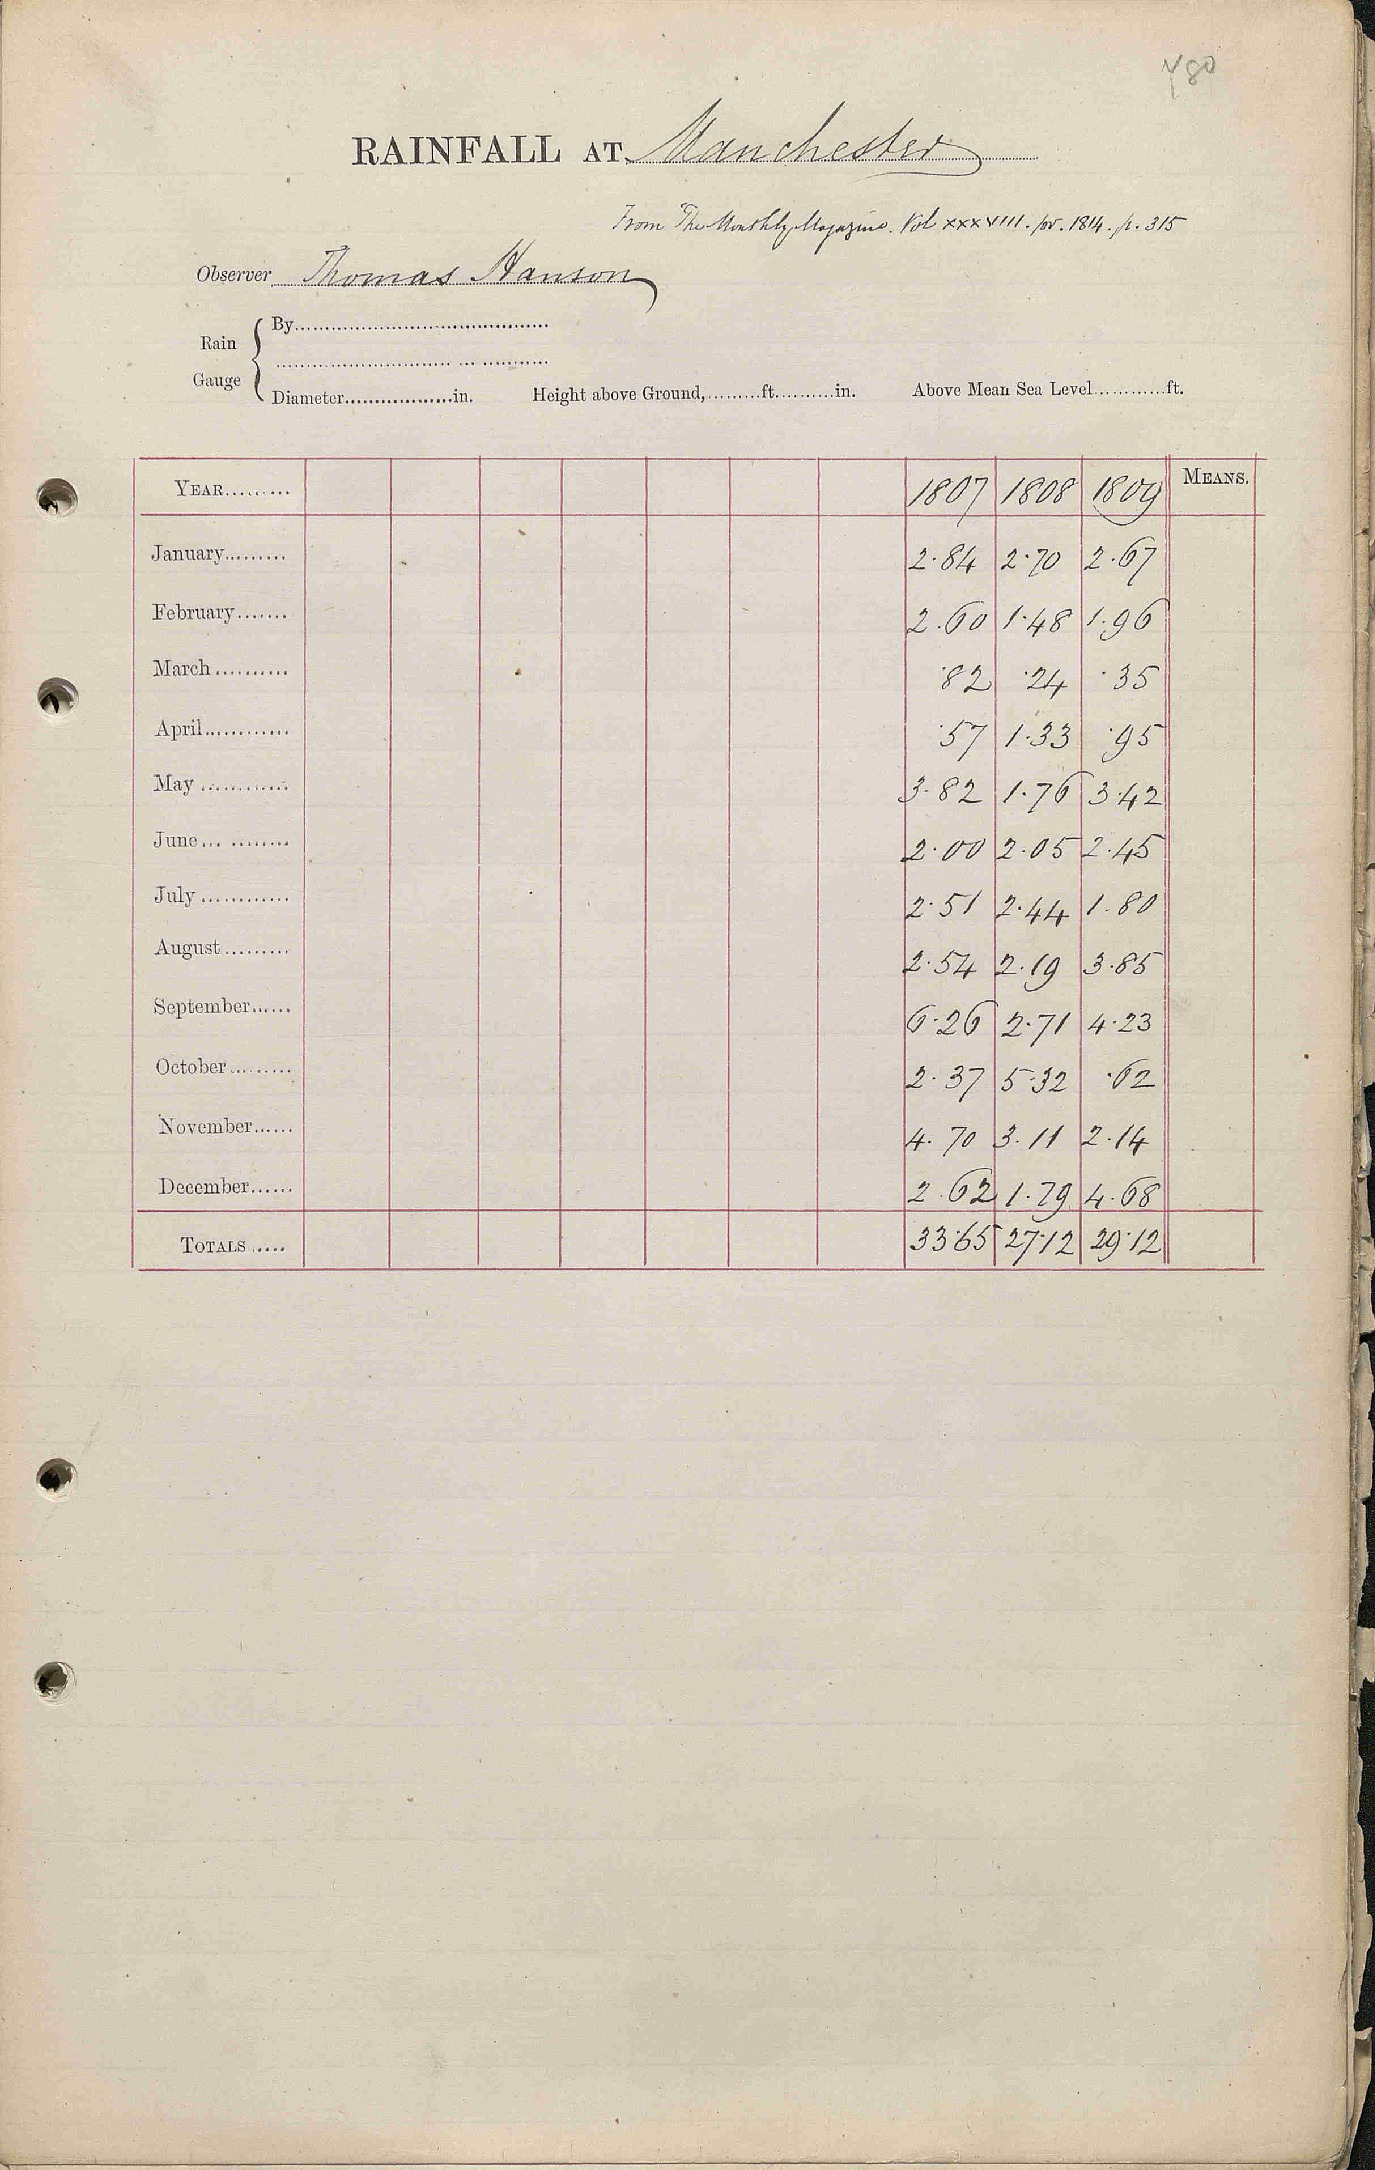 480
RAINFALL AT Manchester
From The Monthly Magazine. Vol XXXVIII. for. 1814. p. 315
Observer Thomas Hanson
Rain Gauge { By
Diameter in. Height above Ground, ft. in. Above Mean Sea Level ft.
YEAR 1807 1808 1809 MEANS.
January 2.84 2.70 2.67
February 2.60 1.48 1.96
March .82 .24 .35
April .57 1.33 .95
May 3.82 1.76 3.42
June 2.00 2.05 2.45
July 2.51 2.44 1.80
August 2.54 2.19 3.85
September 6.26 2.71 4.23
October 2.37 5.32 .62
November 4.70 3.11 2.14
December 2.62 1.79 4.68
TOTALS 33.65 27.12 29.12